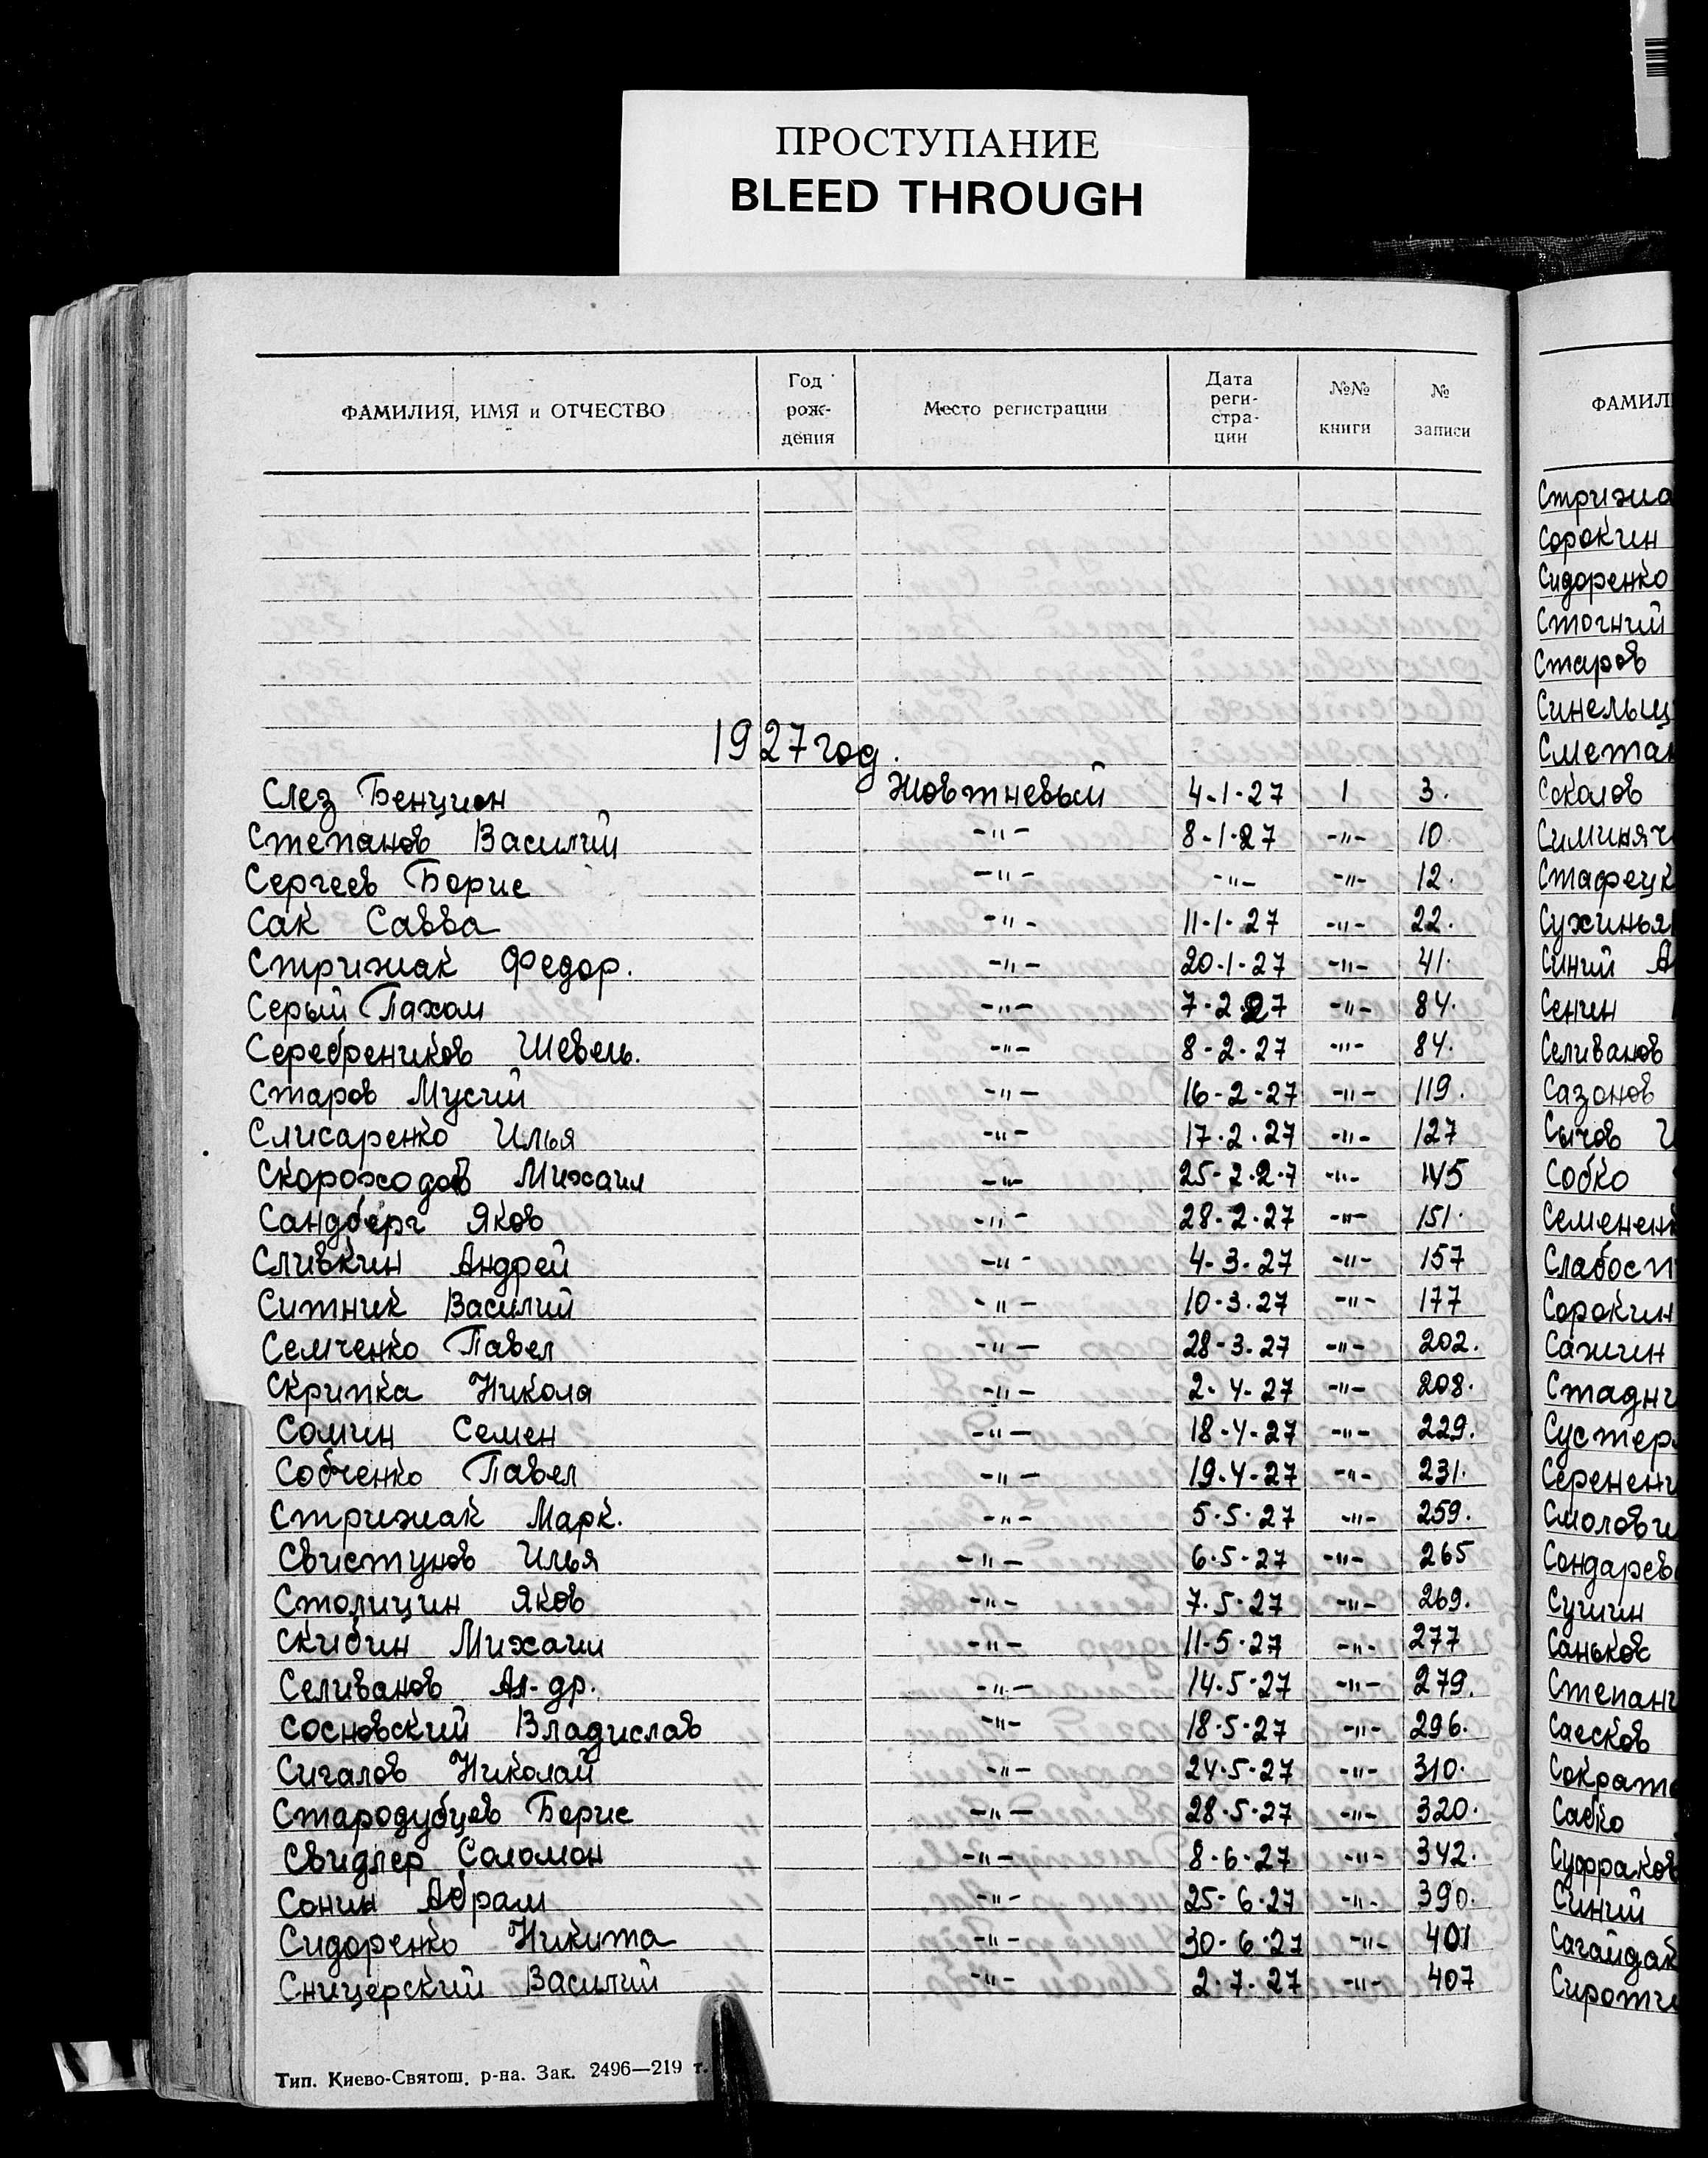 ПРОСТУПАНИЕ
BLEED THROUGH
ФАМИЛИЯ, ИМЯ и ОТЧЕСТВО Год рож- дения Место регистрации Дата реги- стра- ции №№ книги № записи
1927 год.
Слез Бенцион Жовтневый 4-1-27 1 3.
Степанов Василий -"- 8-1-27 -"- 10.
Сергеев Борис -"- -"- -"- 12.
Сак Савва -"- 11-1-27 -"- 22.
Стрижак Федор. -"- 20-1-27 -"- 41.
Серый Пахом -"- 7-2-27 -"- 84.
Серебреников Шевель. -"- 8-2-27 -"- 84.
Старов Мусий -"- 16-2-27 -"- 119.
Слисаренко Илья -"- 17.2.27 -"- 127
Скороходов Михаил -"- 25-2.2-7 -"- 145
Сандберг Яков -"- 28-2-27 -"- 151.
Сливкин Андрей -"- 4-3-27 -"- 157
Ситник Василий -"- 10-3.27 -"- 177
Семченко Павел -"- 28-3-27 -"- 202.
Скрипка Никола -"- 2-4-27 -"- 208.
Сомин Семен -"- 18-4-27 -"- 229.
Собченко Павел -"- 19.4-27 -"- 231.
Стрижак Марк. -"- 5.5.27 -"- 259.
Свистунов Илья -"- 6.5-27 -"- 265
Столицин Яков -"- 7.5-27 -"- 269.
Скибин Михаил -"- 11-5-27 -"- 277
Селиванов Ал-др. -"- 14.5-27 -"- 279.
Сосновский Владислав -"- 18.5-27 -"- 296.
Сигалов Николай -"- 24.5-27 -"- 310.
Стародубцев Борис -"- 28.5-27 -"- 320.
Свидлер Соломон -"- 8-6-27 -"- 342.
Сонин Абрам -"- 25-6-27 -"- 390.
Сидоренко Никита -"- 30-6-27 -"- 401
Сницерский Василий -"- 2.7.27 -"- 407
Тип. Киево-Святош. р-на. Зак. 2496—219 т.
ФАМИЛ
Стрижа
Сорокин
Сидоренко
Стогний
Старов
Синельщ
Сметан
Соколов
Симиняч
Стафецк
Сухинья
Синий А
Сенин
Селиванов
Сазонов
Сычов
Собко
Семенен
Слабосп
Сорокин
Сажин
Стадни
Сустер
Серенен
Смолови
Сондарев
Сушин
Саньков
Степан
Саесков
Сократ
Сабко
Суфраков
Синий
Сагайдак
Сироти